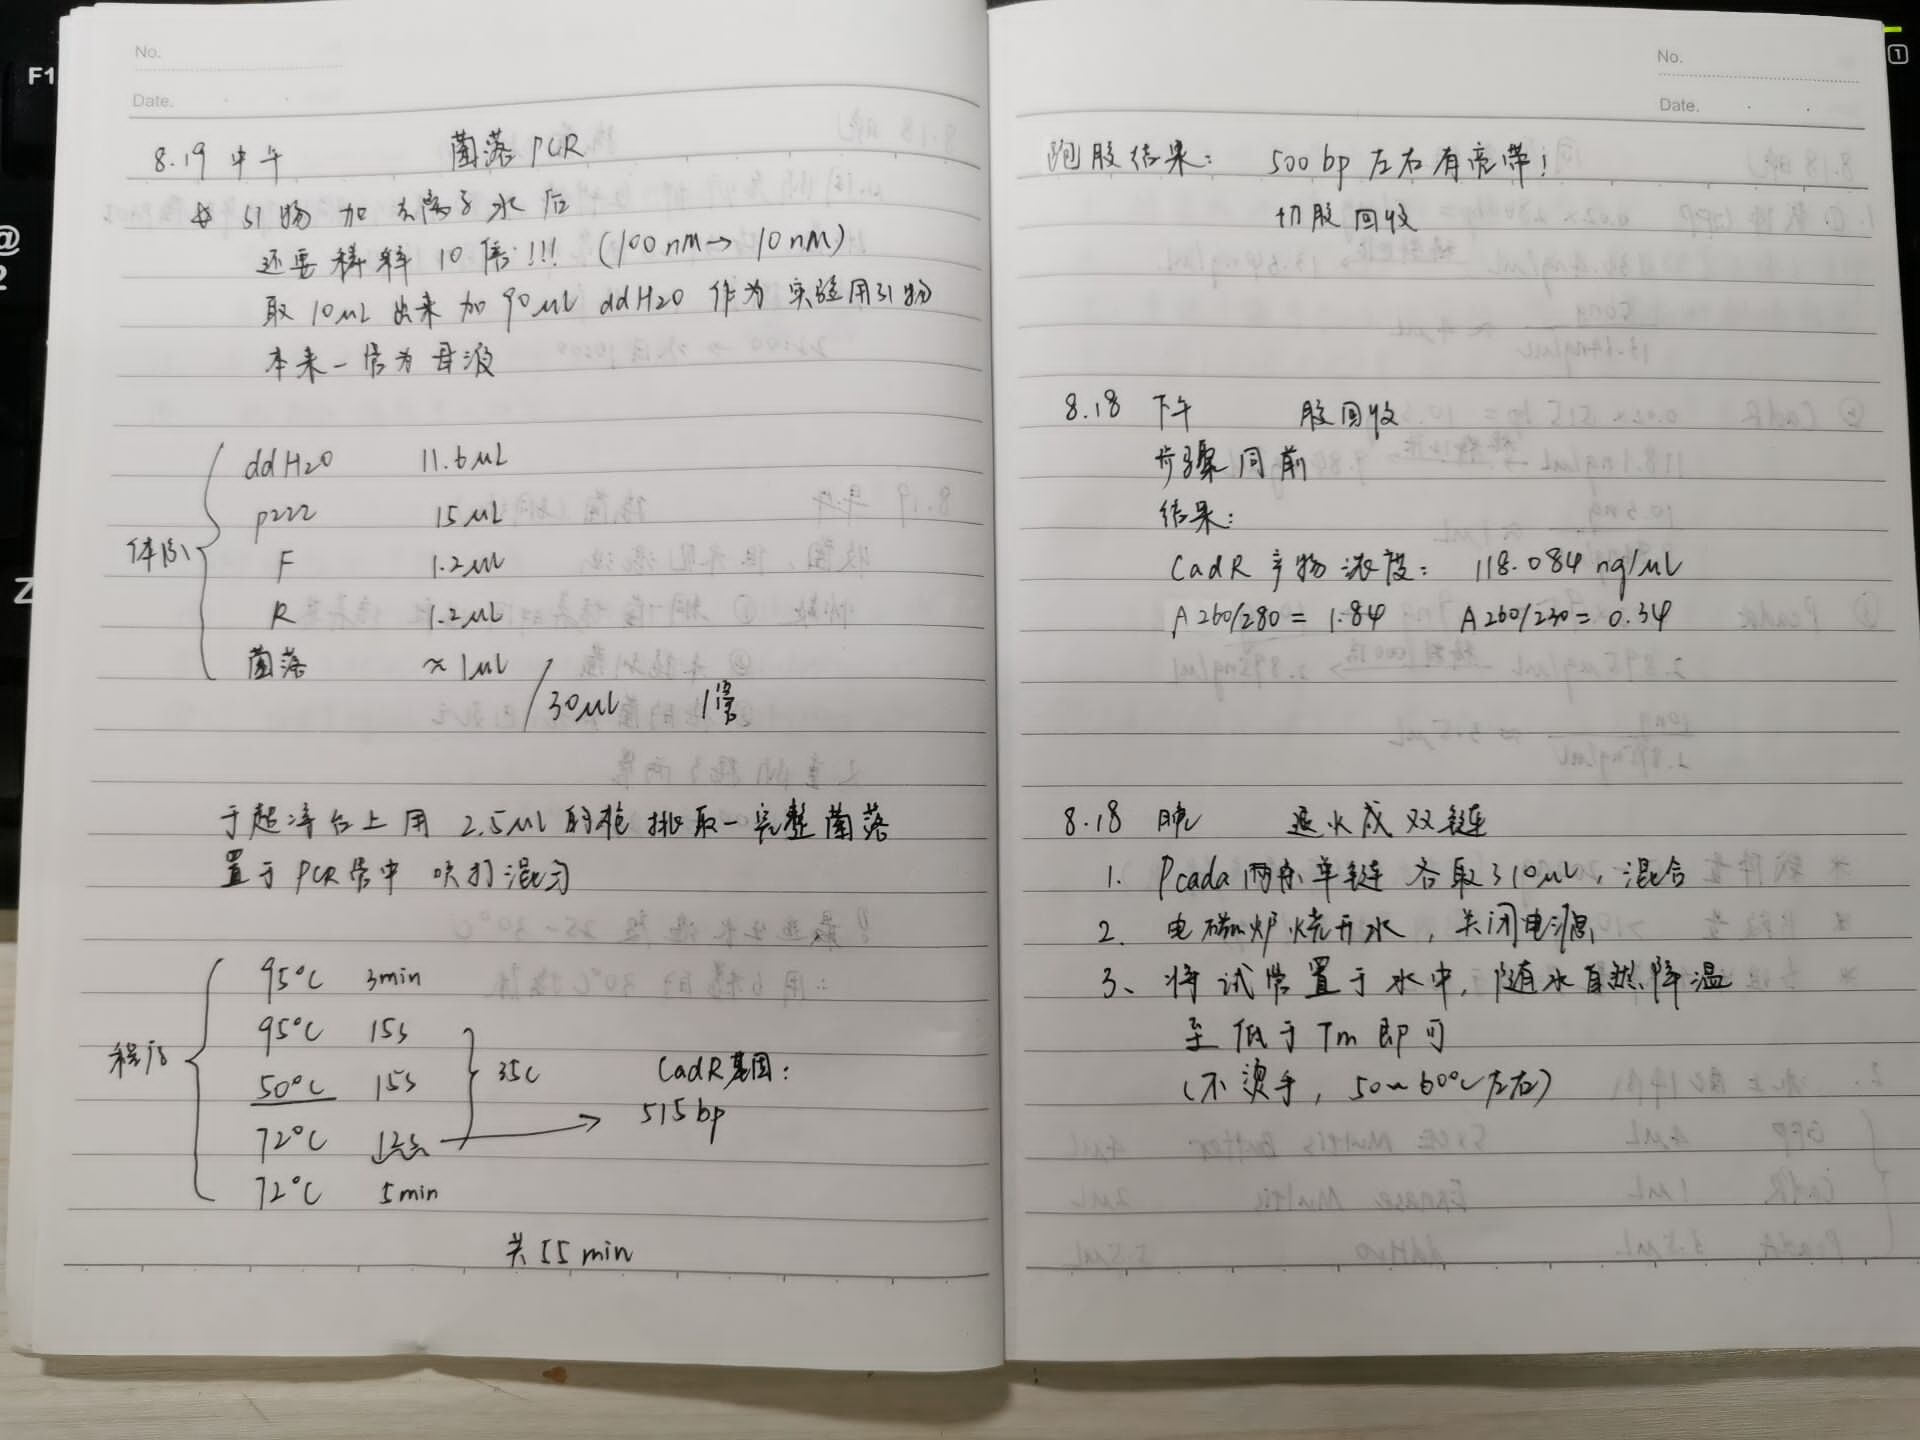 No.
Date.
8.19 中午 菌落PCR
* 引物加去离子水后
还要稀释10倍!!! (100nM→10nM)
取10μL出来加90μL ddH2O作为实验用引物
本来一管为母液
体队
ddH2O 11.6μL
p222 15μL
F 1.2μL
R 1.2μL
菌落 ≈1μL
/30μL 1管
于超净台上用2.5μL的枪挑取一完整菌落
置于PCR管中 吹打混匀
程序
95℃ 3min
95℃ 15s
50℃ 15s
35C
72℃ 12s
72℃ 5min
CadR基因:
515bp
共55min
No.
Date.
跑胶结果: 500bp左右有亮带!
切胶回收
8.18 下午 胶回收
步骤同前
结果:
CadR产物浓度: 118.084ng/μL
A260/280=1.84 A260/230=0.34
8.18 晚 退火成双链
1. Pcada两条单链各取310μL,混合
2. 电磁炉烧开水,关闭电源
3、将试管置于水中,随水自然降温
至低于Tm即可
(不烫手,50~60℃左右)
F1
@
2
Z
1